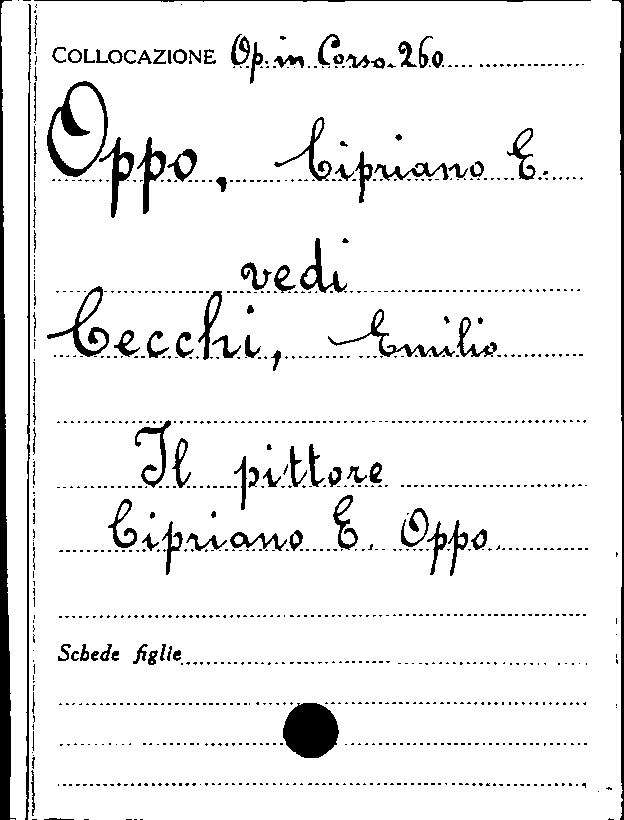 COLLOCAZIONE Op. in Corso. 260
Oppo, Cipriano E.
vedi
Cecchi, Emilio
Il pittore
Cipriano E. Oppo.
Schede figlie